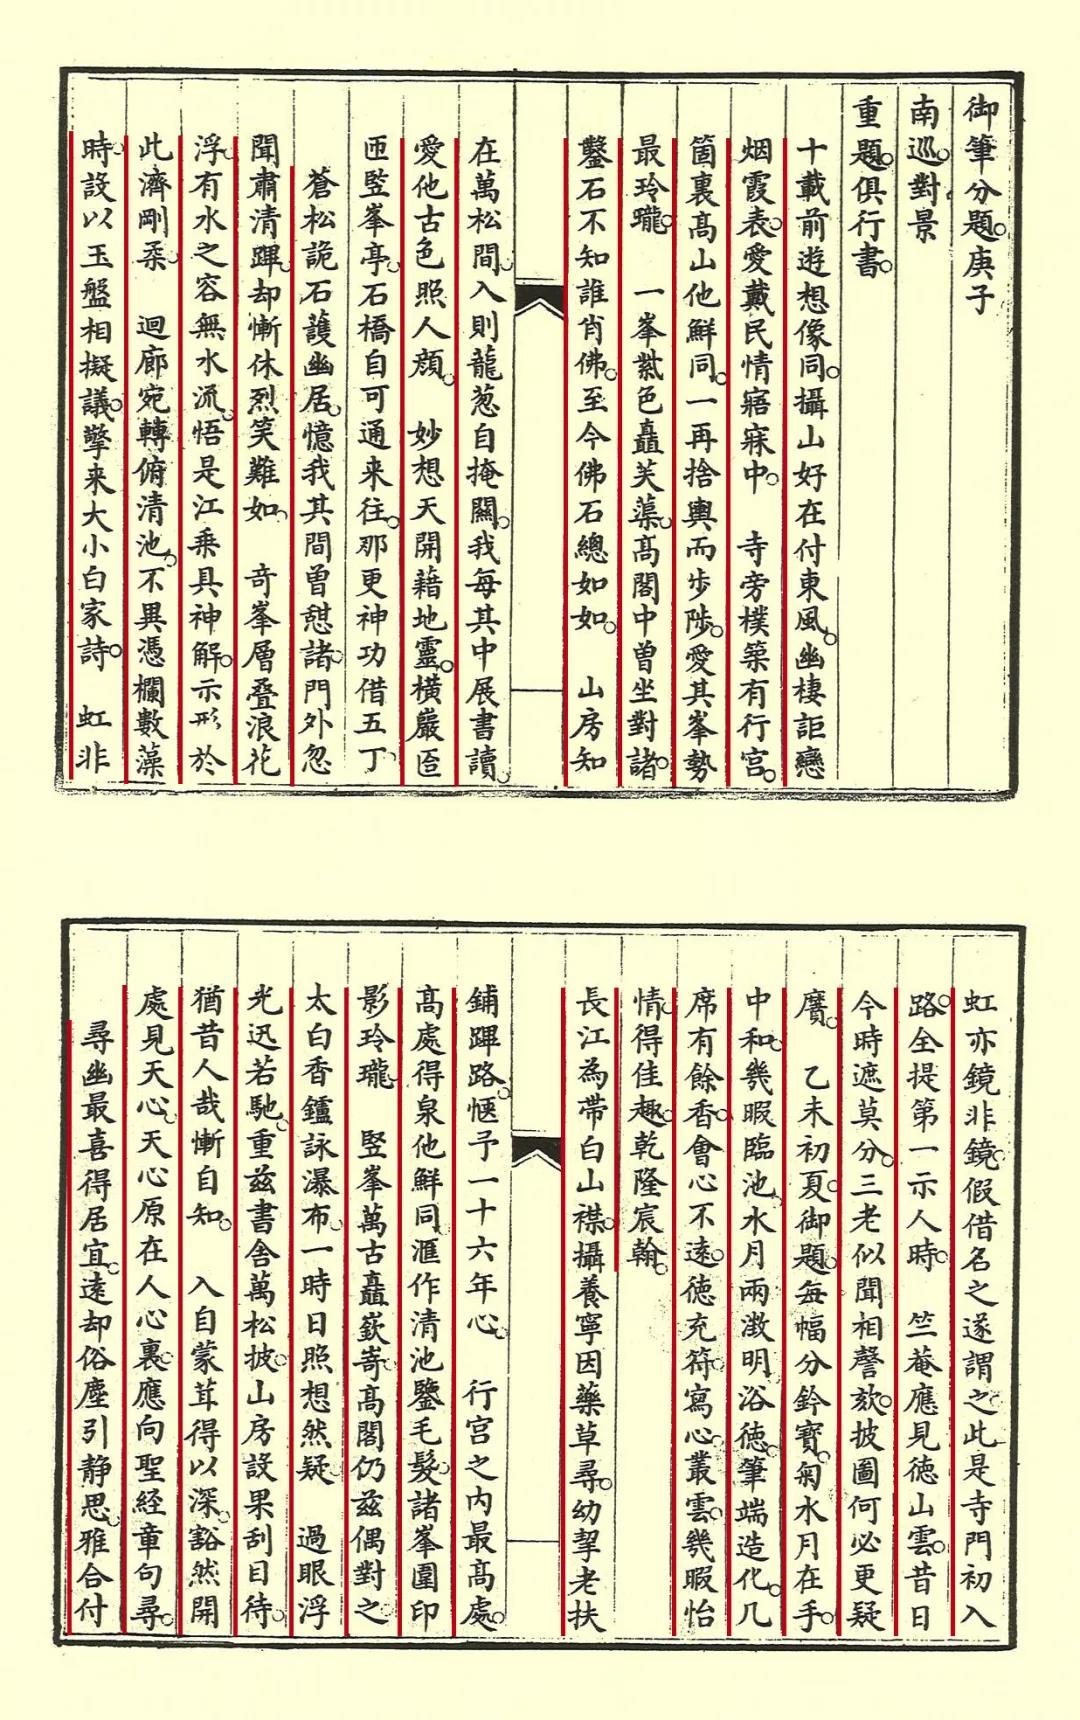 御筆分題庚子
南巡對景
重題俱行書
十載前遊想像同攝山好在付東風幽棲詎戀
烟霞表愛戴民情寤寐中　寺旁樸築有行宮
箇裏髙山他鮮同一再捨輿而步陟愛其峯勢
最玲瓏　一峯紫色矗芙蕖髙閣中曾坐對諸
鑿石不知誰肖佛至今佛石總如如　山房知
在萬松間入則龍葱自掩關我每其中展書讀
愛他古色照人顔　妙想天開藉地靈橫巖匼
匝竪峯亭石橋自可通來往那更神功借五丁
蒼松詭石護幽居憶我其間曽憇諸門外忽
聞肅清蹕却慚休烈笑難如　竒峯層叠浪花
浮有水之容無水流悟是江乘具神解示形於
此濟剛柔　迴廊宛轉俯清池不異憑欄數藻
時設以玉盤相擬議擎来大小白家詩　虹非
虹亦鏡非鏡假借名之遂謂之此是寺門初入
路全提第一示人時　竺菴應見徳山雲昔日
今時遮莫分三老似聞相謦欬披圖何必更疑
賡　乙未初夏御題每幅分鈐寶菊水月在手
中和幾暇臨池水月兩澂明浴徳筆端造化几
席有餘香會心不逺徳充符寫心叢雲幾暇怡
情得佳趣乾隆宸翰
長江為帶白山襟攝養寧因藥草尋幼挈老扶
鋪蹕路愜予一十六年心　行宮之内最髙處
髙處得泉他鮮同滙作清池鑒毛髮諸峯圍印
影玲瓏　竪峯萬古矗嶔嵜髙閣仍兹偶對之
太白香鑪詠瀑布一時日照想然疑　過眼浮
光迅若馳重兹書舍萬松披山房設果刮目待
猶昔人哉慚自知　入自蒙茸得以深豁然開
處見天心天心原在人心裏應向聖經章句尋
尋幽最喜得居宜逺却俗塵引静思雅合付